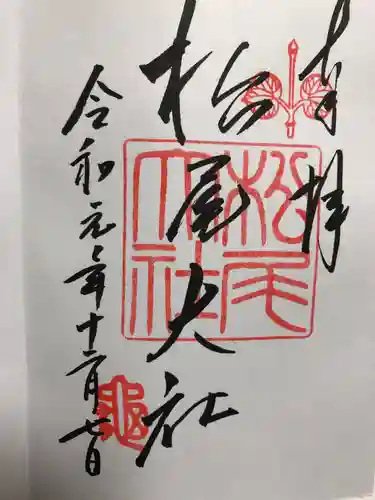 奉拝
松尾大社
松尾大社
令和元年十二月七日